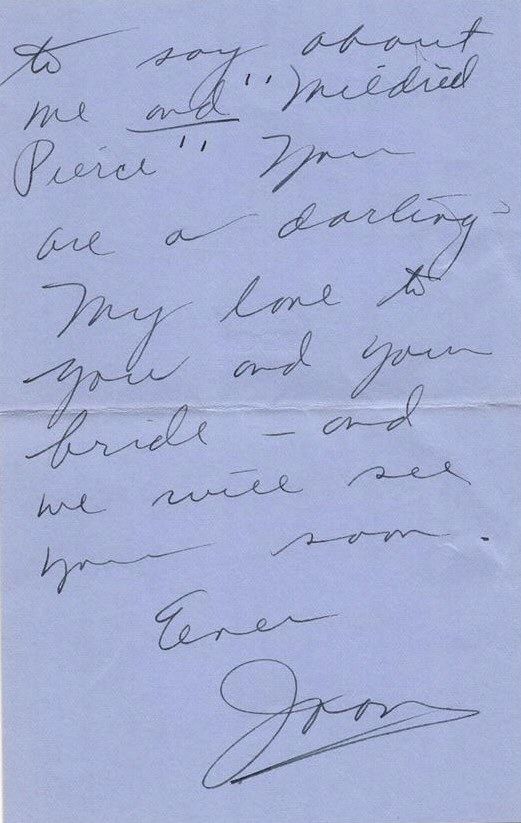 to say about
me and "Mildred
Pierce". You
are a darling -
My love to
you and your
bride - and
we will see
you soon.
Ever
Joan